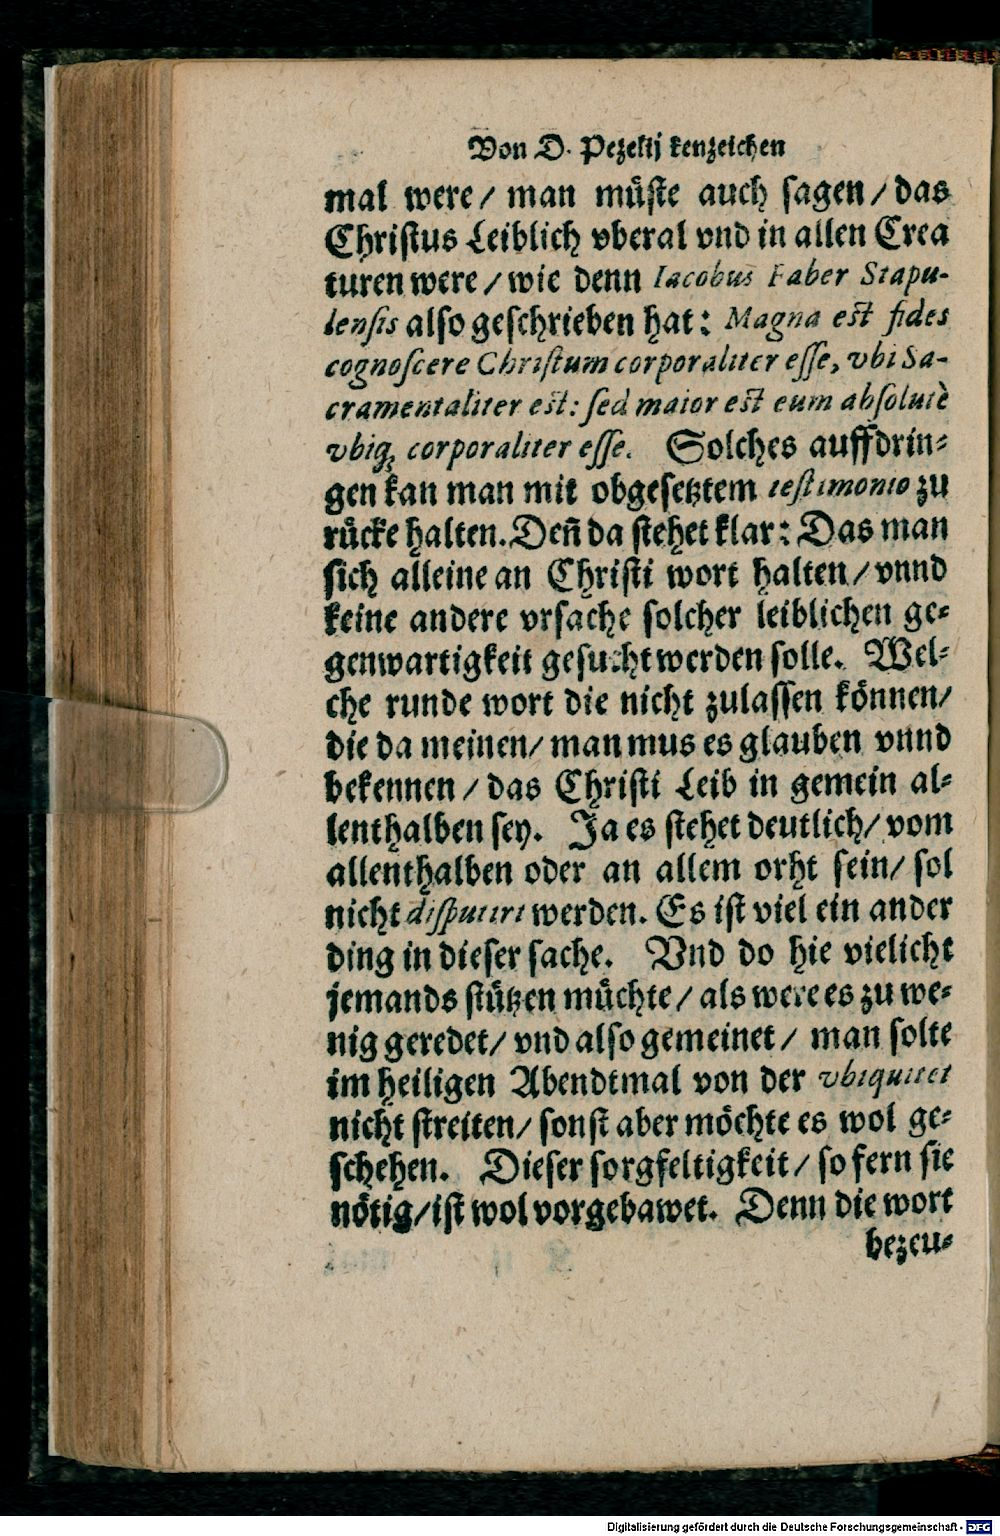 Von D. Pezelij kenzeichen
mal were/ man müste auch sagen/ das
Christus Leiblich vberal vnd in allen Crea
turen were/ wie denn Iacobus Faber Stapu-
lensis also geschrieben hat: Magna est fides
cognoscere Christum corporaliter esse, vbi Sa-
cramentaliter est: sed maior est eum absolutè
vbiq; corporaliter esse. Solches auffdrin-
gen kan man mit obgesetztem testimonio zu
rücke halten. Deñ da stehet klar: Das man
sich alleine an Christi wort halten/ vnnd
keine andere vrsache solcher leiblichen ge-
genwartigkeit gesucht werden solle. Wel-
che runde wort die nicht zulassen können/
die da meinen/ man mus es glauben vnnd
bekennen/ das Christi Leib in gemein al-
lenthalben sey. Ja es stehet deutlich/ vom
allenthalben oder an allem orht sein/ sol
nicht disputirt werden. Es ist viel ein ander
ding in dieser sache. Vnd do hie vielicht
jemands stützen müchte/ als were es zu we-
nig geredet/ vnd also gemeinet/ man solte
im heiligen Abendtmal von der vbiquitet
nicht streiten/ sonst aber möchte es wol ge-
schehen. Dieser sorgfeltigkeit/ so fern sie
nötig/ ist wol vorgebawet. Denn die wort
bezeu-
Digitalisierung gefördert durch die Deutsche Forschungsgemeinschaft - DFG